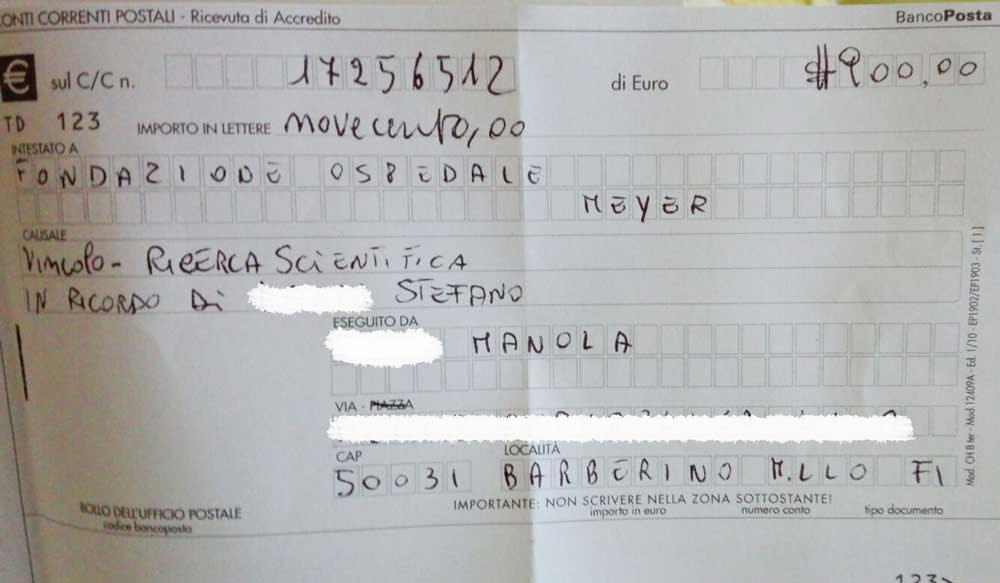 ONTI CORRENTI POSTALI - Ricevuta di Accredito BancoPosta
€ sul C/C n. 17256512 di Euro #900,00
TD 123 IMPORTO IN LETTERE novecento,00
INTESTATO A
FONDAZIONE OSPEDALE
MEYER
CAUSALE
Vincolo - RICERCA SCIENTIFICA
IN RICORDO DI STEFANO
ESEGUITO DA
MANOLA
VIA - PIAZZA
CAP LOCALITÀ
50031 BARBERINO M.LLO FI
IMPORTANTE: NON SCRIVERE NELLA ZONA SOTTOSTANTE!
BOLLO DELL'UFFICIO POSTALE
codice bancoposta
importo in euro numero conto tipo documento
Mod. CH 8 ter - Mod. 12409A - Ed. 1/10 - EP1902/EP1903 - St. [1]
123>